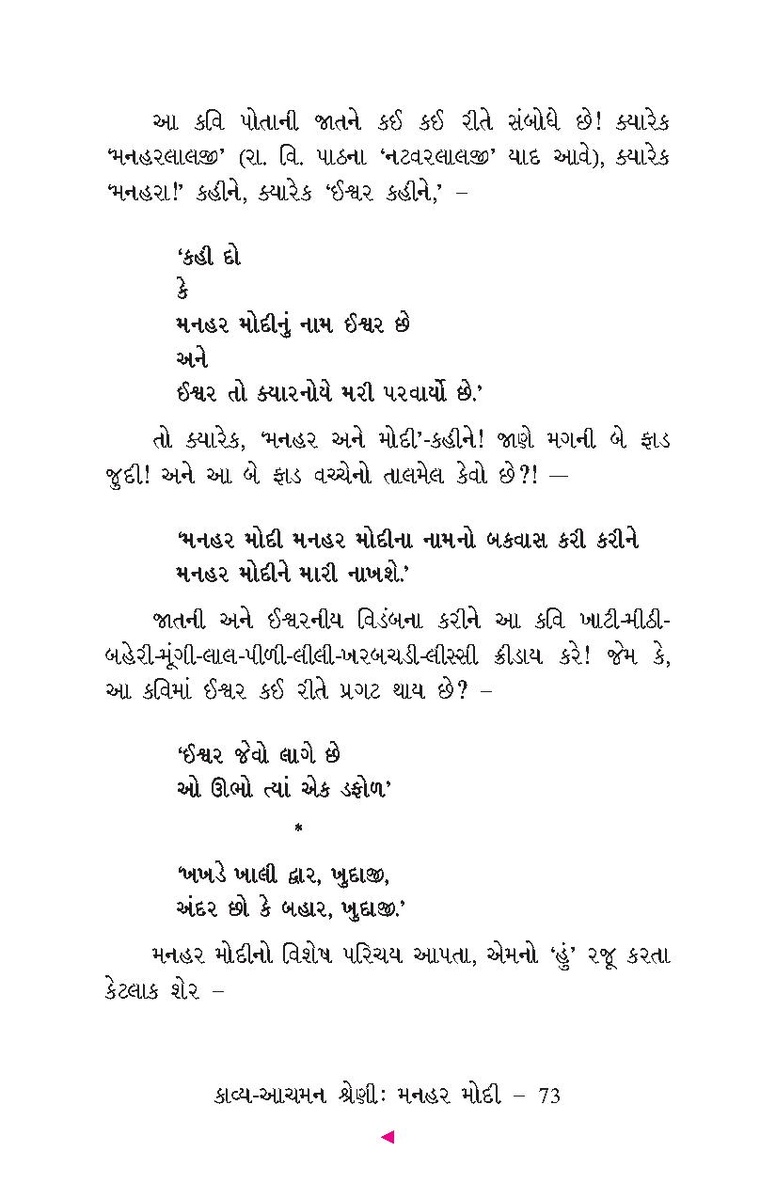 આ કવિ પોતાની જાતને કઈ કઈ રીતે સંબોધે છે! ક્યારેક
‘મનહરલાલજી’ (રા. વિ. પાઠના ‘નટવરલાલજી’ યાદ આવે), ક્યારેક
‘મનહરા!’ કહીને, ક્યારેક ‘ઈશ્વર કહીને,’ –
‘કહી દો
કે
મનહર મોદીનું નામ ઈશ્વર છે
અને
ઈશ્વર તો ક્યારનોયે મરી પરવાર્યો છે.’
તો ક્યારેક, ‘મનહર અને મોદી’-કહીને! જાણે મગની બે ફાડ
જુદી! અને આ બે ફાડ વચ્ચેનો તાલમેલ કેવો છે?! —
‘મનહર મોદી મનહર મોદીના નામનો બકવાસ કરી કરીને
મનહર મોદીને મારી નાખશે.’
જાતની અને ઈશ્વરનીય વિડંબના કરીને આ કવિ ખાટી-મીઠી-
બહેરી-મૂંગી-લાલ-પીળી-લીલી-ખરબચડી-લીસ્સી ક્રીડાય કરે! જેમ કે,
આ કવિમાં ઈશ્વર કઈ રીતે પ્રગટ થાય છે? –
‘ઈશ્વર જેવો લાગે છે
ઓ ઊભો ત્યાં એક ડફોળ’
*
‘ખખડે ખાલી દ્વાર, ખુદાજી,
અંદર છો કે બહાર, ખુદાજી.’
મનહર મોદીનો વિશેષ પરિચય આપતા, એમનો ‘હું’ રજૂ કરતા
કેટલાક શેર –
કાવ્ય-આચમન શ્રેણી: મનહર મોદી – 73